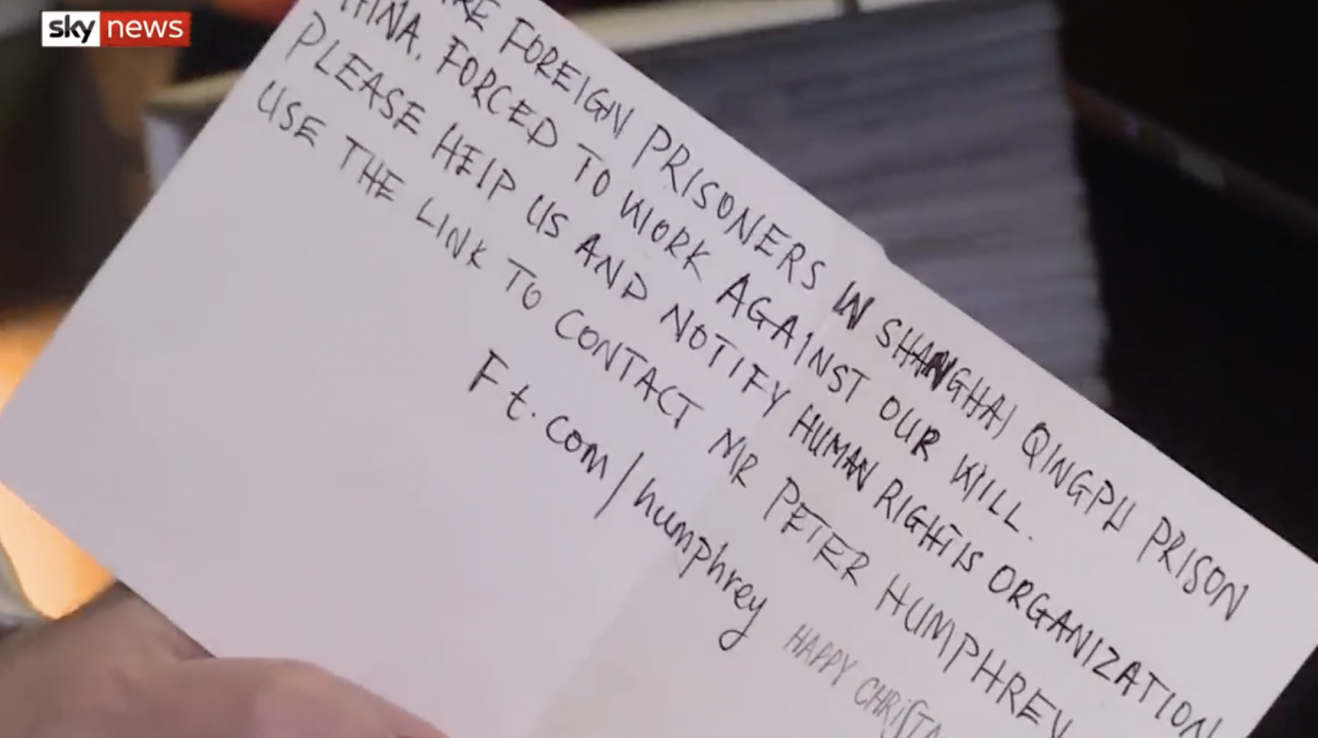 sky news
RE FOREIGN PRISONERS IN SHANGHAI QINGPU PRISON
HINA. FORCED TO WORK AGAINST OUR WILL.
PLEASE HELP US AND NOTIFY HUMAN RIGHTS ORGANIZATION
USE THE LINK TO CONTACT MR PETER HUMPHREY
Ft.com/humphrey
HAPPY CHRISTM